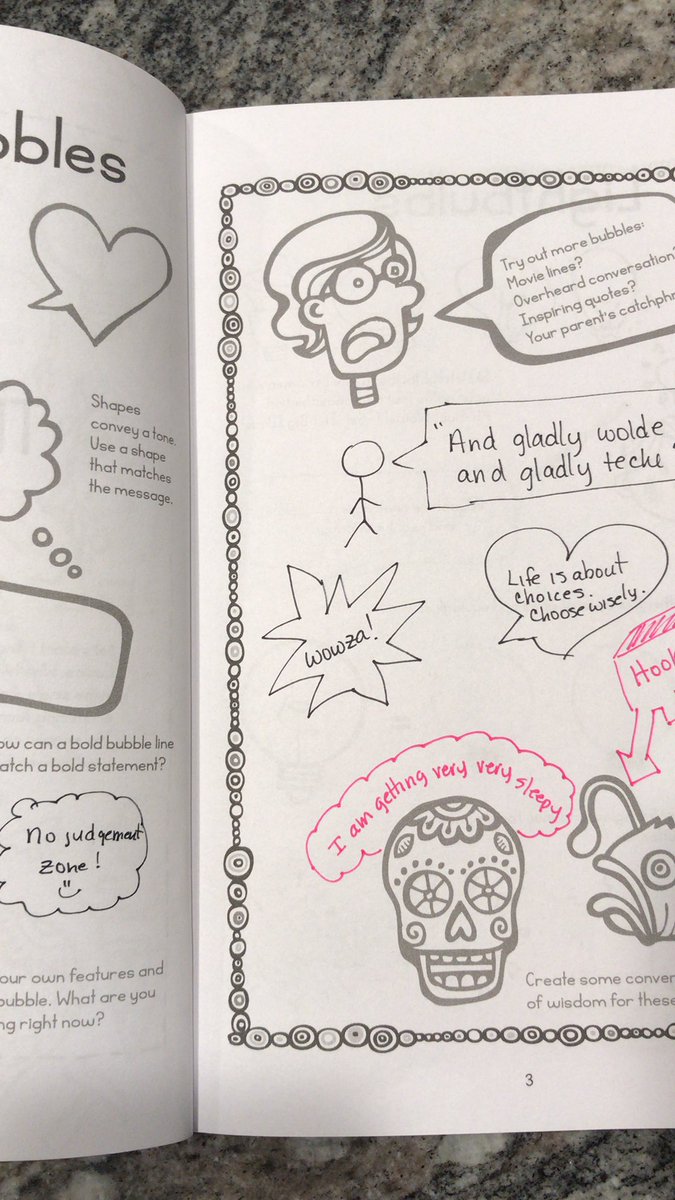 bbles
Shapes
convey a tone.
Use a shape
that matches
the message.
ow can a bold bubble line
atch a bold statement?
No judgement
zone!
our own features and
bubble. What are you
ng right now?
Try out more bubbles:
Movie lines?
Overheard conversation?
Inspiring quotes?
Your parent's catchphr
"And gladly wolde
and gladly teche
Life is about
choices.
Choose wisely.
Wowza!
Hook
I am getting very very sleepy
Create some conver
of wisdom for these
3